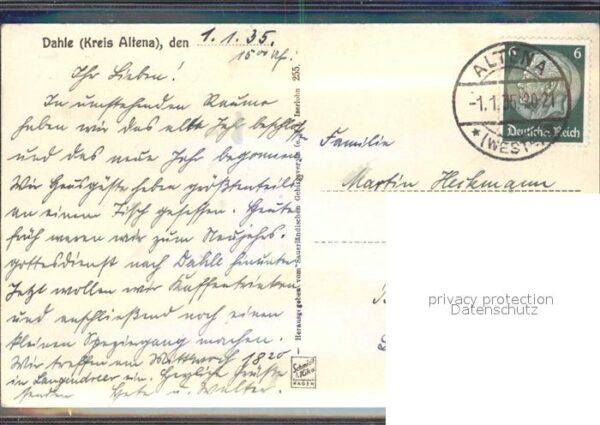 Dahle (Kreis Altena), den 1.1.35.
15⁰⁰ Uhr.
Ihr Lieben!
In umstehendem Raume
haben wir das alte Jahr beschlossen
und das neue Jahr begonnen.
Wir Hausgäste haben größtenteils
an einem Tisch gesessen. Heute
früh waren wir zum Neujahrs-
gottesdienst nach Dahle hinunter.
Jetzt wollen wir Kaffeetrinken
und anschließend noch einen
kleinen Spaziergang machen.
Wir treffen am Mittwoch 18²⁰
in Langendreer ein. Herzliche Grüße
senden Grete u. Walter.
Herausgegeben vom Sauerländischen Gebirgsverein Iserlohn 255.
Schmidt
HAGEN
6 6
Deutsches Reich
ALTENA
-1.1.35.20-21
(WESTF)
Familie
Martin Heikmann
privacy protection
Datenschutz